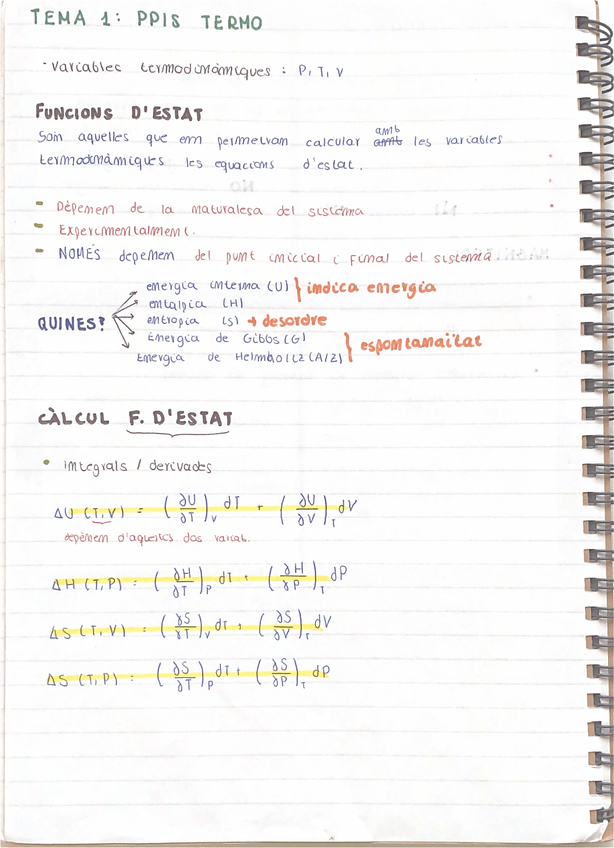 TEMA 1: PPIS TERMO
· Variables termodinàmiques : P, T, V
FUNCIONS D'ESTAT
Són aquelles que em permetran calcular amb les variables
termodinàmiques les equacions d'estat.
- Dèpenen de la naturalesa del sistema
- Experimentalment.
- NOMÉS depenen del punt inicial i final del sistema
QUINES?
energia interna (U) } indica energia
entalpia (H)
entropia (S) → desordre
Energia de Gibbs (G)
Energia de Helmholtz (A/Z) } espontaneïtat
CÀLCUL F. D'ESTAT
• integrals / derivades
ΔU (T, V) = (∂U/∂T)_V dT + (∂U/∂V)_T dV
depènen d'aquestes dos variab.
ΔH (T, P) = (∂H/∂T)_P dT + (∂H/∂P)_T dP
ΔS (T, V) = (∂S/∂T)_V dT + (∂S/∂V)_T dV
ΔS (T, P) = (∂S/∂T)_P dT + (∂S/∂P)_T dP